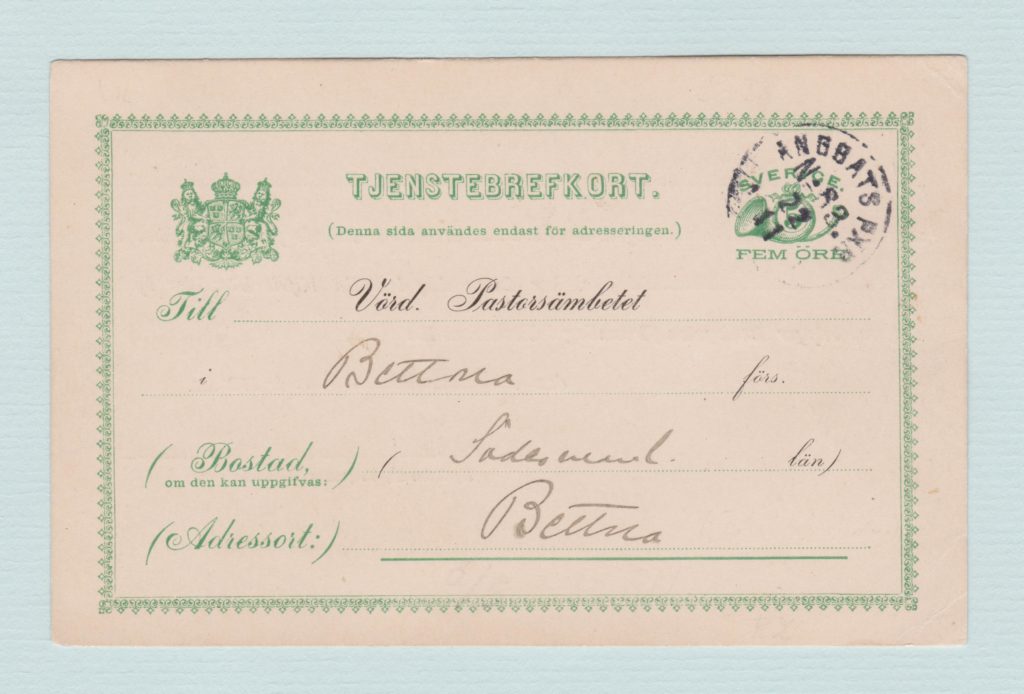 TJENSTEBREFKORT.
(Denna sida användes endast för adresseringen.)
SVERIGE.
FEM ÖRE
ÅNGBÅTS PXP
No 83.
22
Till Vörd. Pastorsämbetet
i Bettna förs.
(Bostad,) ( län)
om den kan uppgifvas:
(Adressort:) Bettna